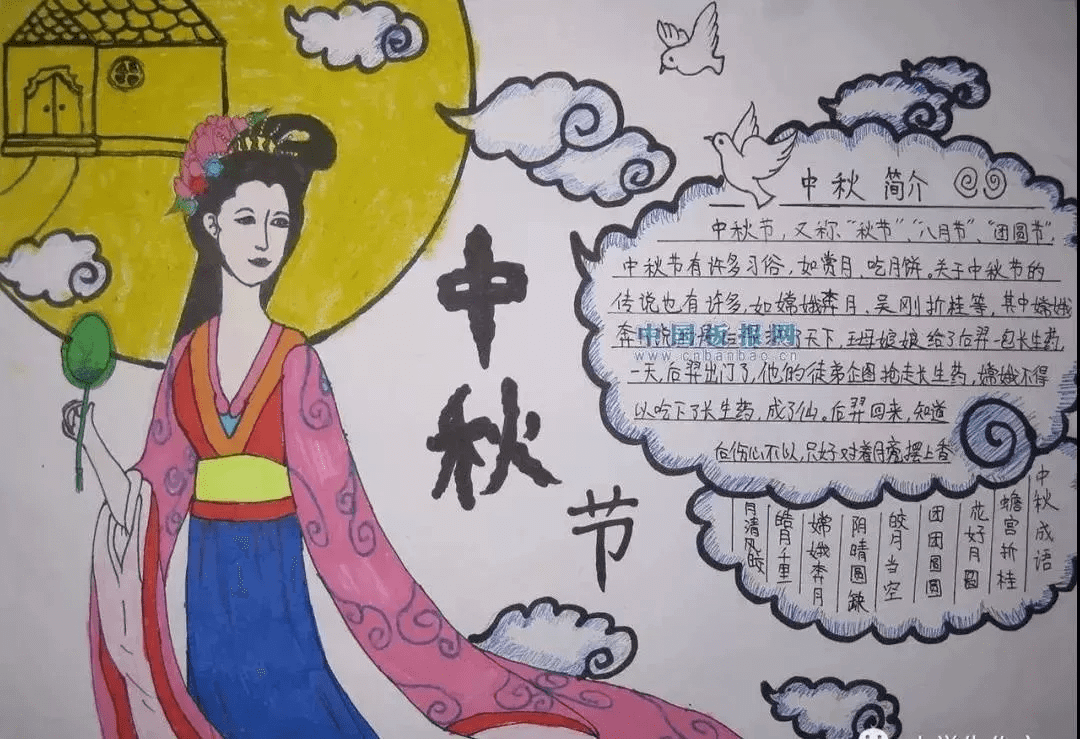 中秋节
中秋 简介
中秋节，又称“秋节”、“八月节”、“团圆节”，
中秋节有许多习俗，如赏月、吃月饼。关于中秋节的
传说也有许多，如嫦娥奔月、吴刚折桂等，其中嫦娥
奔月说 了天下，王母娘娘给了后羿一包长生药
一天，后羿出门了，他的徒弟企图抢走长生药，嫦娥不得
以吃下了长生药，成了仙。后羿回来，知道
后伤心不以，只好对着月亮摆上香
中国板报网
www.cnbanbao.cn
中秋成语
蟾宫折桂
花好月圆
团团圆圆
皎月当空
阴晴圆缺
嫦娥奔月
皓月千里
月清风皎